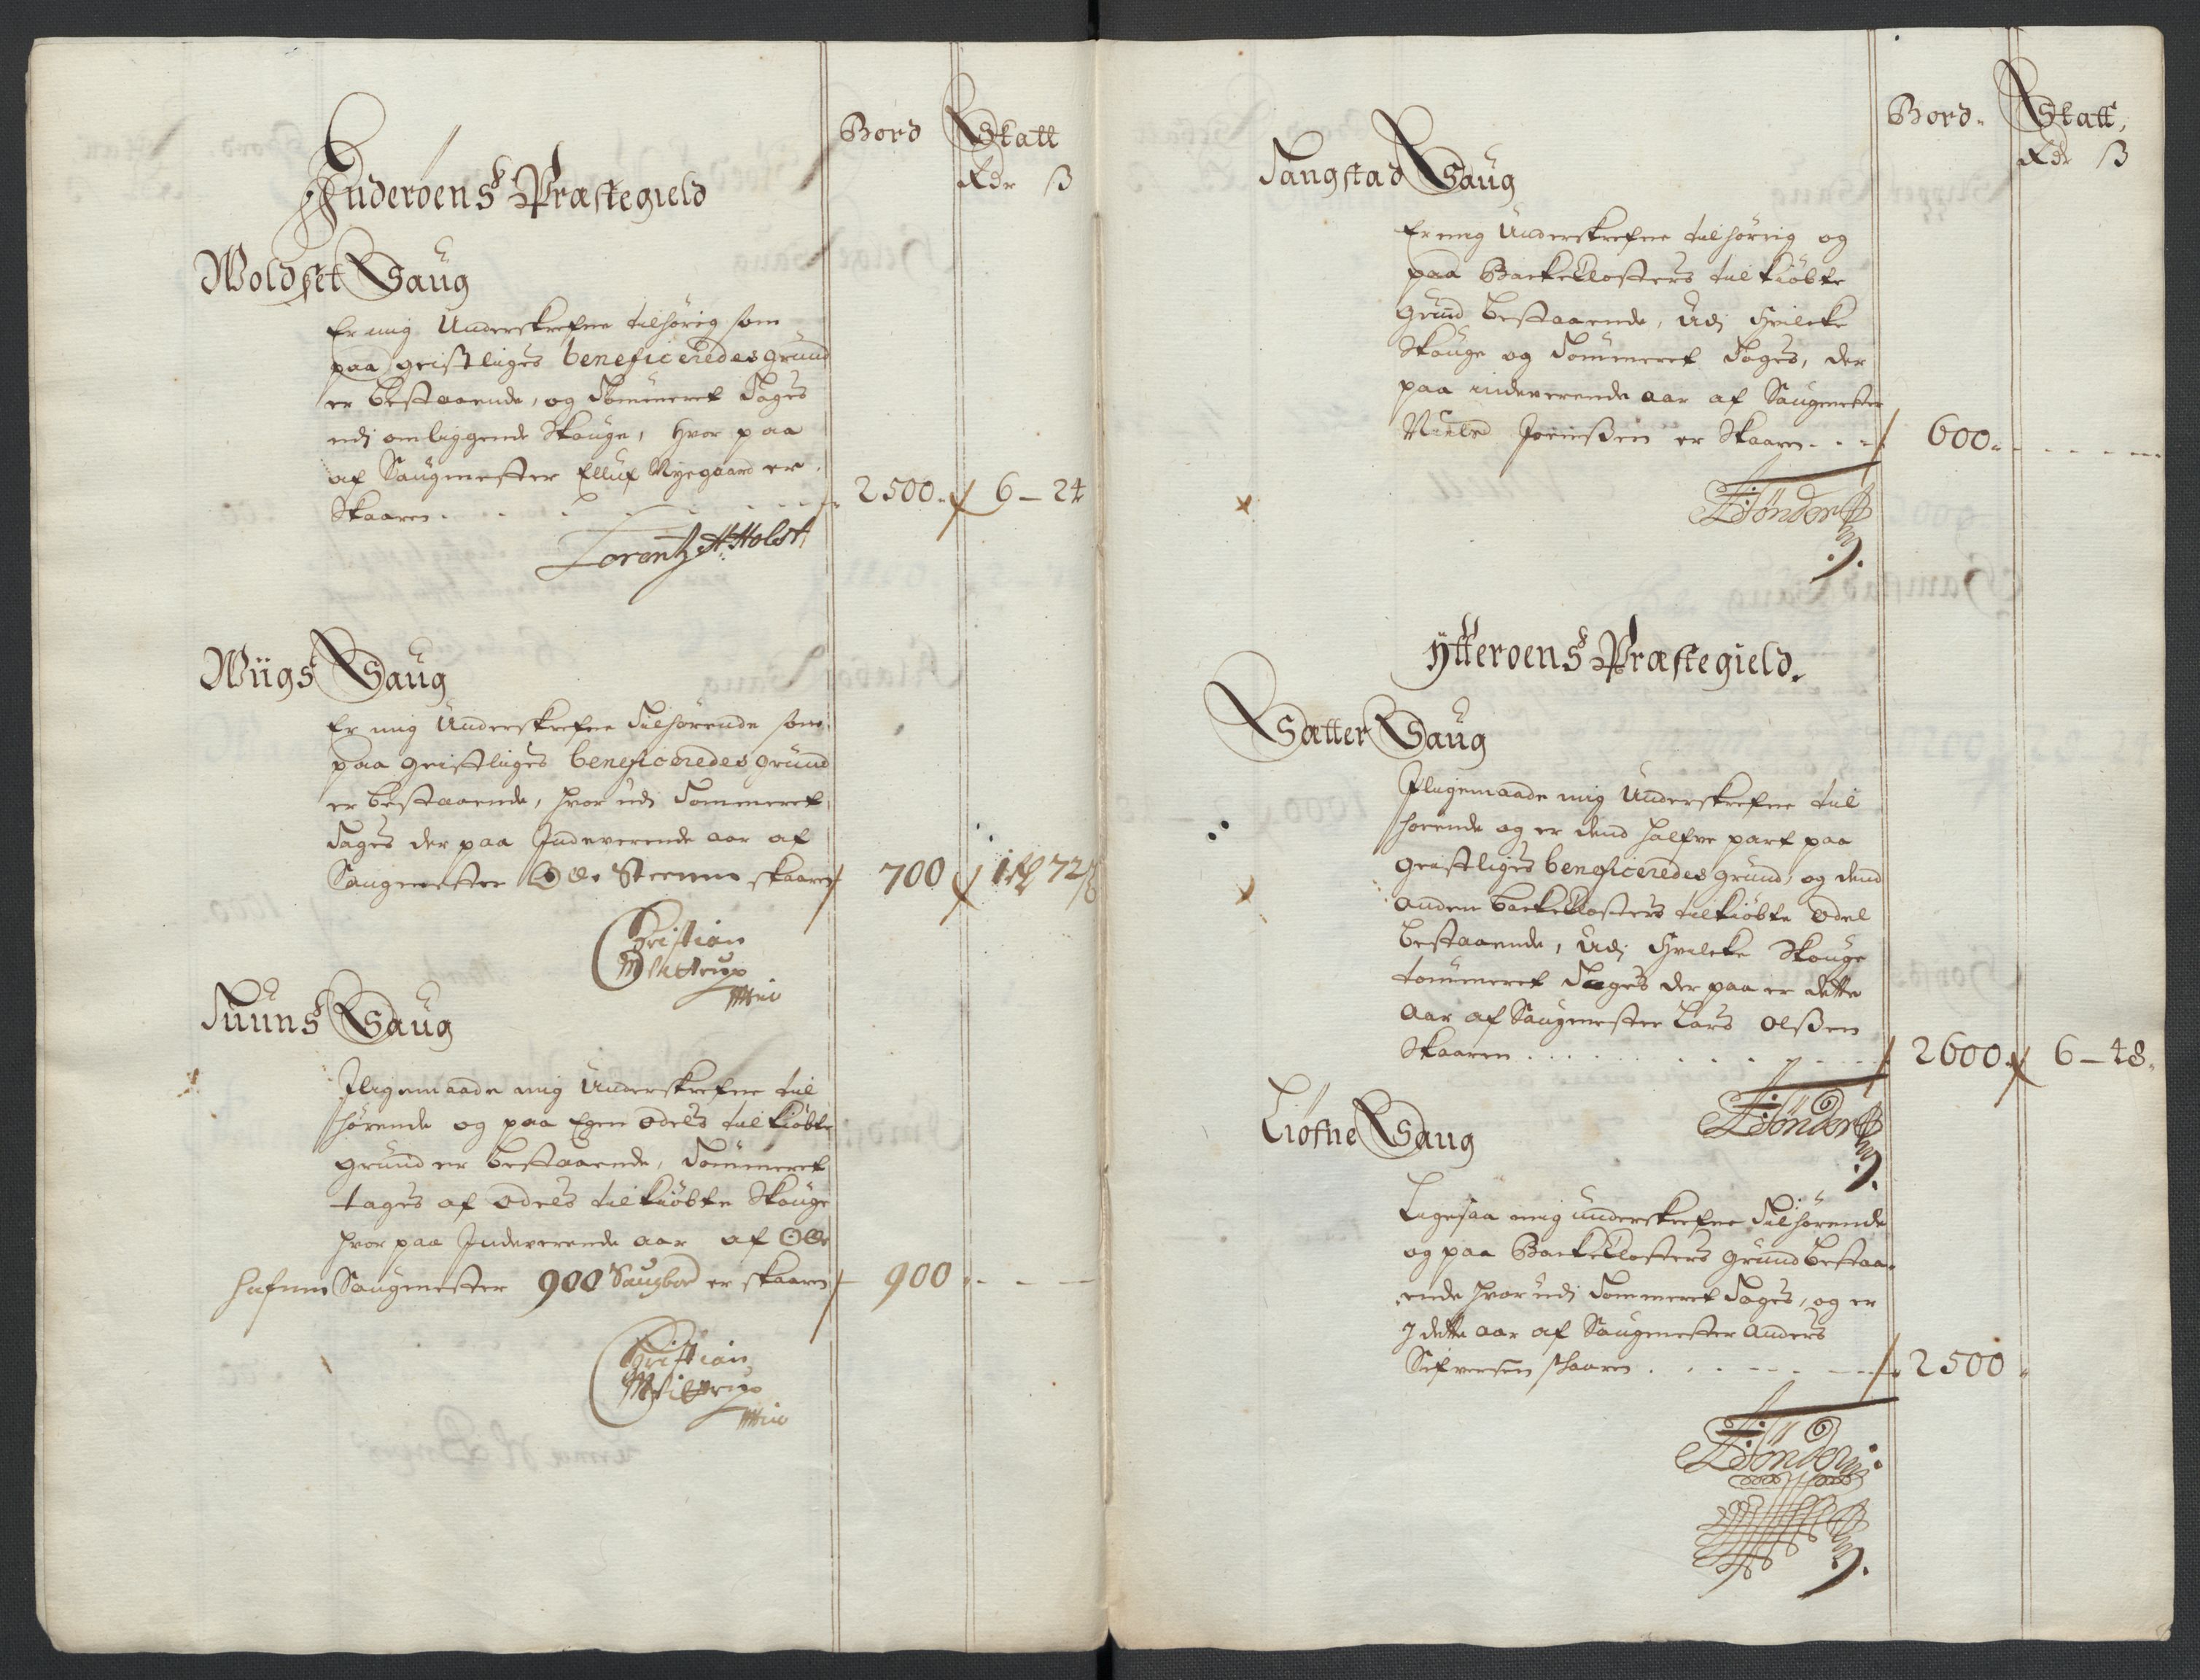 Bord Skatt
Rdr ß
Inderøens Præstegield
Woldset Saug
Er mig Underskrefne tilhørig som
paa geistliges beneficeredes grund
er bestaaende, og Tømmeret tages
udj omliggende Skouge, hvor paa
af Saugmester Elluf Nygaard er
Skaaren . . . . 2500. 6 – 24
Lorentz H: Holst
Wiigs Saug
Er mig Underskrefne Tilhørende som
paa geistliges beneficeredes grund
er bestaaende, hvor udj Tømmeret
tages der paa Indeverende aar af
Saugmester Ole Steenen skaaren 700 1 72
Christian
Mhio
Tuuns Saug
Iligemaade mig Underskrefne til
hørende og paa Egen odels tilkiøbte
grund er bestaaende, Tømmeret
tages af odels tilkiøbte Skouge
hvor paa Indeverende aar af Ole
Hafnen Saugmester 900 Saugbord er skaaren 900 . - - -
Christian
Mhio
Bord. Skatt,
Rdr ß
Tangstad Saug
Er mig Underskrefne tilhørrig og
paa Backe Closters tilkiøbte
grund bestaaende, Udj Hvilcke
Skouge og Tømmeret tages, der
paa indeverende aar af Saugmester
Joenßen er Skaaren . . . 600. - - - -
Tønder
Ytterøens Præstegield.
Sætter Saug
Iligemaade mig Underskrefne til
hørende og er dend halfve part paa
geistliges beneficeredes grund, og dend
anden backe Closters tilkiøbte odel
bestaaende, Udj Hvilcke Skouge
tømmeret tages der paa er dette
aar af Saugmester Lars Olßen
Skaaren . . . . 2600. 6 – 48.
Tønder
Liøfne Saug
Ligesaa mig underskrefne Tilhørende
og paa Backe Closters grund bestaa-
ende hvor udj Tømmeret tages, og er
J dette aar af Saugmester Anders
Sifversen skaaren . . . . 2500
Tønder